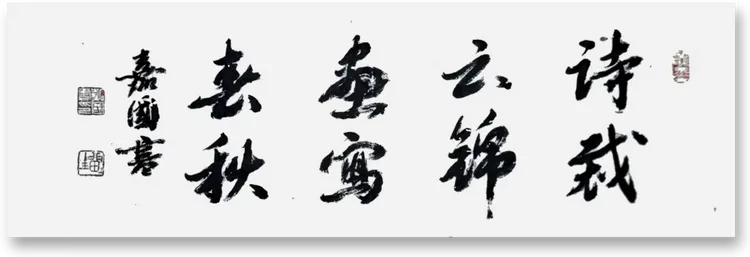 诗裁
云锦
画写
春秋
嘉国书